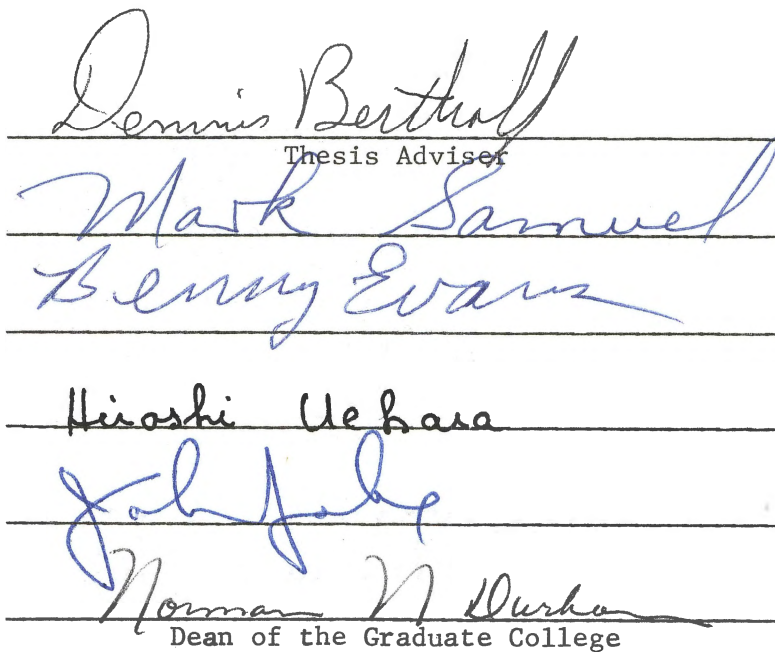 Dennis Bertholf
Thesis Adviser
Mark Samuel
Benny Evans
Hiroshi Uehara
John Jobe
Norman N Durham
Dean of the Graduate College